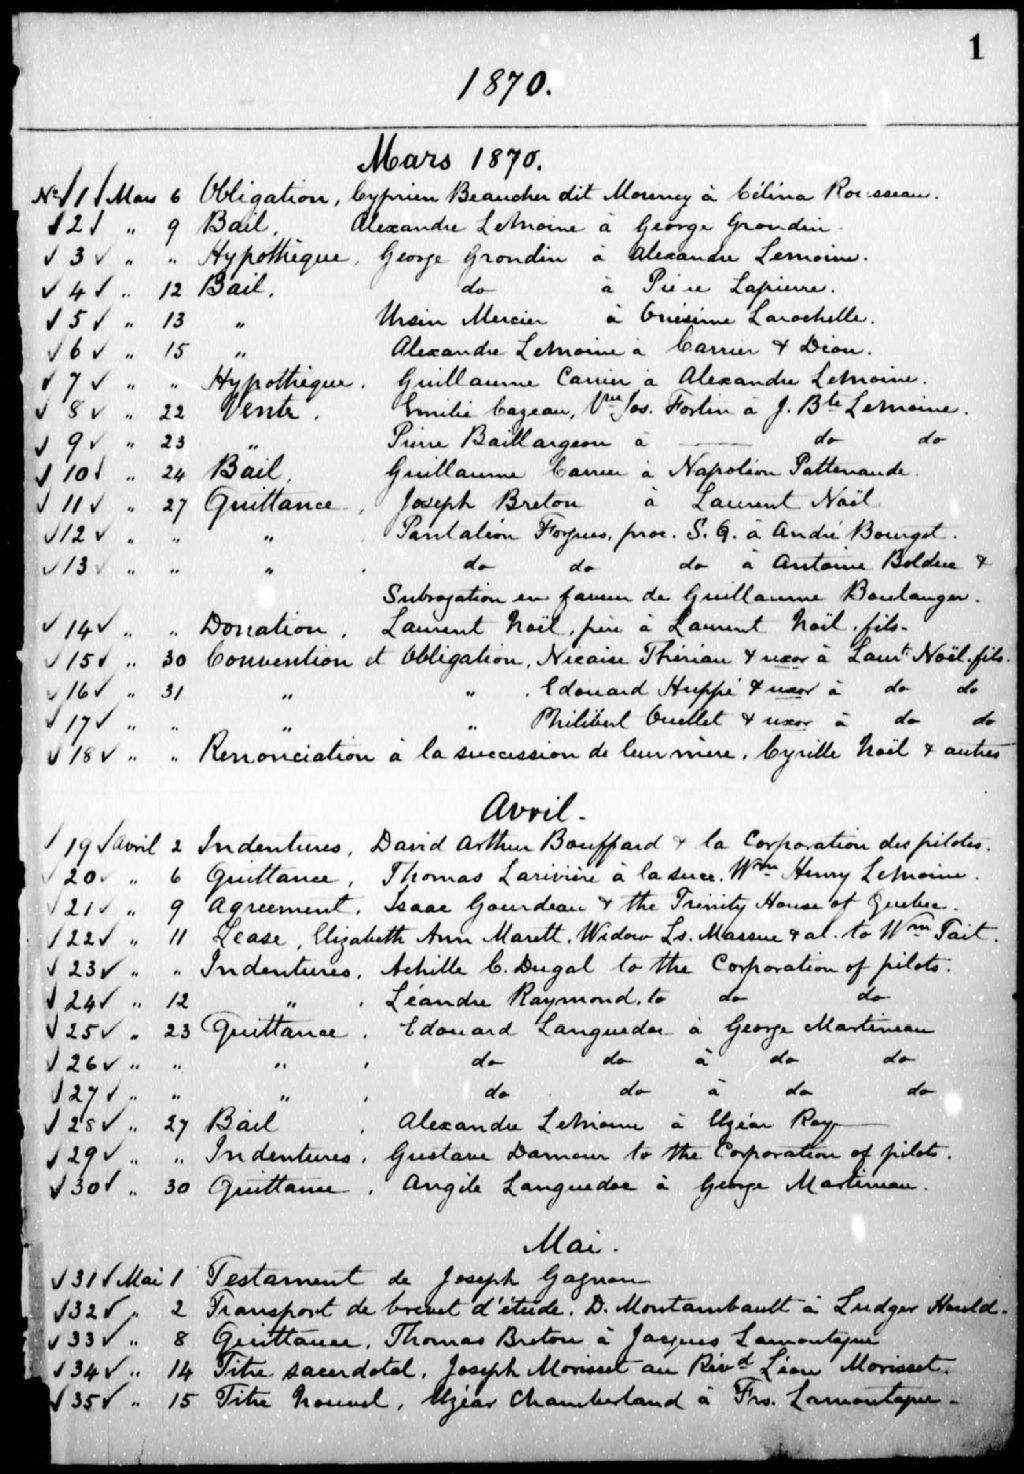 1
1870.
Mars 1870.
No 1 Mars 6 Obligation, Cyprien Beaucher dit Morency à Célina Rousseau.
2 " 9 Bail, Alexandre LeMoine à George Grondin.
3 " " Hypothèque, George Grondin à Alexandre Lemoine.
4 " 12 Bail, do à Pierre Lapierre.
5 " 13 " Ursin Mercier à Onésime Larochelle.
6 " 15 " Alexandre LeMoine à Carrier & Dion.
7 " " Hypothèque. Guillaume Carrier à Alexandre LeMoine.
8 " 22 Vente. Emilie Cazeau, Vve Jos. Fortin à J. Bte LeMoine.
9 " 23 " Pierre Baillargeon à — do do
10 " 24 Bail, Guillaume Carrier à Napoléon Pattenaude.
11 " 27 Quittance, Joseph Breton à Laurent Noël
12 " " " . Pantaléon Forgues, proc. S. G. à André Bourget.
13 " " " . do do do à Antoine Bolduc &
Subrogation en faveur de Guillaume Boulanger.
14 " " Donation, Laurent Noël, père à Laurent Noël, fils.
15 " 30 Convention et Obligation, Nicaise Thériau & uxor à Laurt Noël, fils.
16 " 31 " " . Edouard Huppé & uxor à do do
17 " " " " Philibert Ouellet & uxor à do do
18 " " Renonciation à la succession de leur mère, Cyrille Noël & autres
Avril.
19 Avril 2 Indentures, David Arthur Bouffard & la Corporation des pilotes.
20 " 6 Quittance, Thomas Larivière à la succ. Wm Henry LeMoine.
21 " 9 Agreement, Isaac Gourdeau & the Trinity House of Quebec.
22 " 11 Lease, Elizabeth Ann Marett, Widow Ls. Massue & al. to Wm Tait.
23 " " Indentures, Achille C. Dugal to the Corporation of pilots.
24 " 12 " . Léandre Raymond, to do do
25 " 23 Quittance, Edouard Languedoc à George Martineau
26 " " " . do do à do do
27 " " " . do do à do do
28 " 27 Bail . Alexandre LeMoine à Elzéar Roy
29 " " Indentures, Gustave Damour to the Corporation of pilots.
30 " 30 Quittance, Angèle Languedoc à George Martineau.
Mai.
31 Mai 1 Testament de Joseph Gagnon
32 " 2 Transport de brevet d'étude, D. Montambault à Ludger Hould.
33 " 8 Quittance, Thomas Breton à Jacques Lamontagne
34 " 14 Titre sacerdotal, Joseph Morisset au Révd Léon Morisset.
35 " 15 Titre Nouvel, Elzéar Chamberland à Frs. Lamontagne.